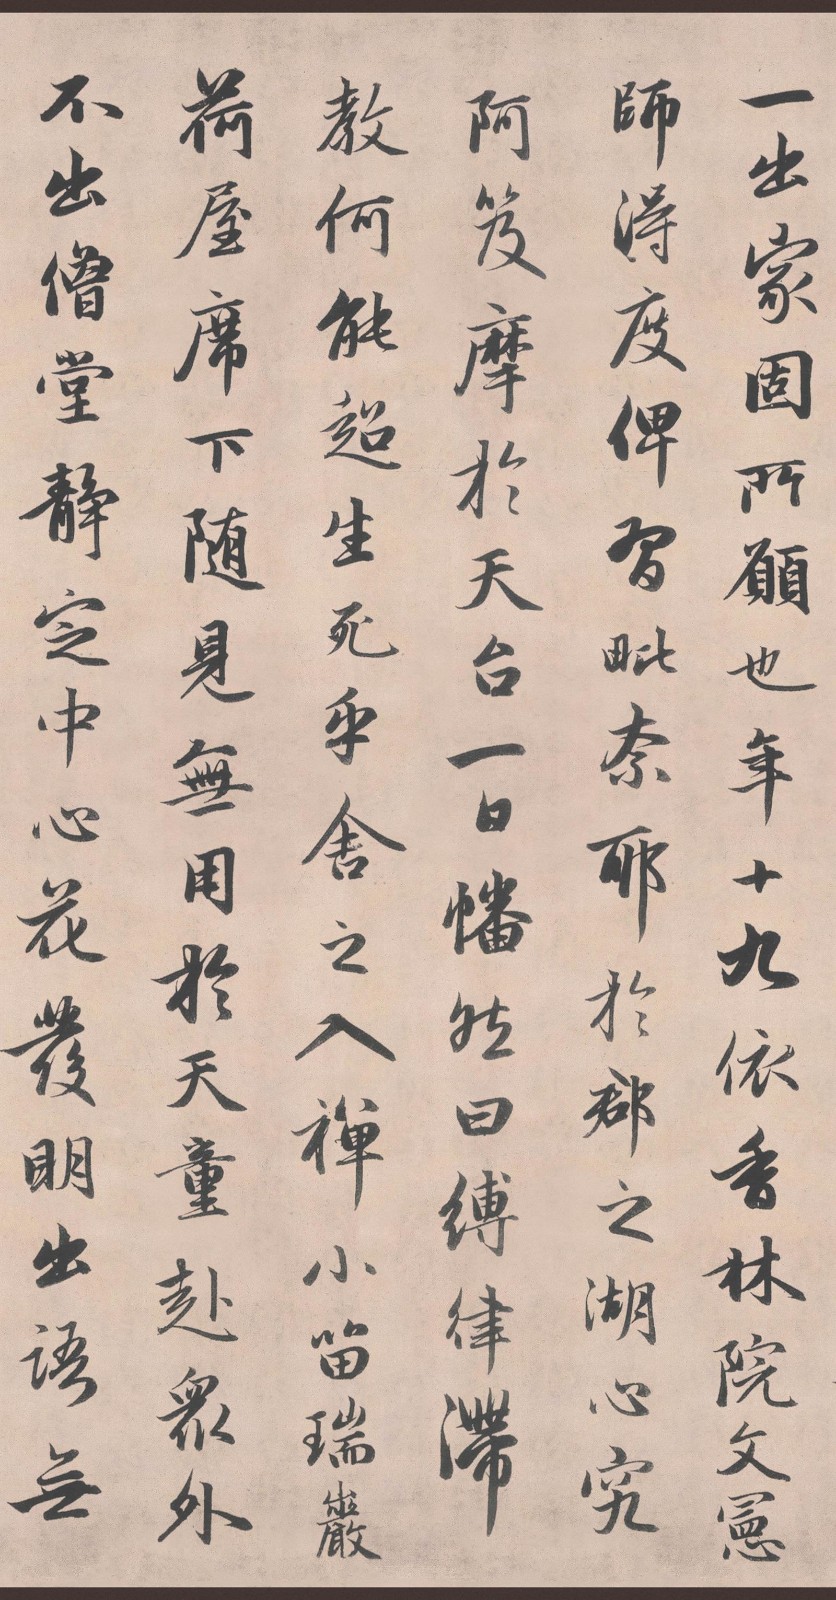 一出家固所願也年十九依香林院文憲
師得度俾習毗奈耶於郡之湖心究
阿笈摩於天台一日幡然曰縛律滯
教何能超生死乎舍之入禪小留瑞巖
荷屋席下随見無用於天童赴衆外
不出僧堂靜定中心花發明出語無